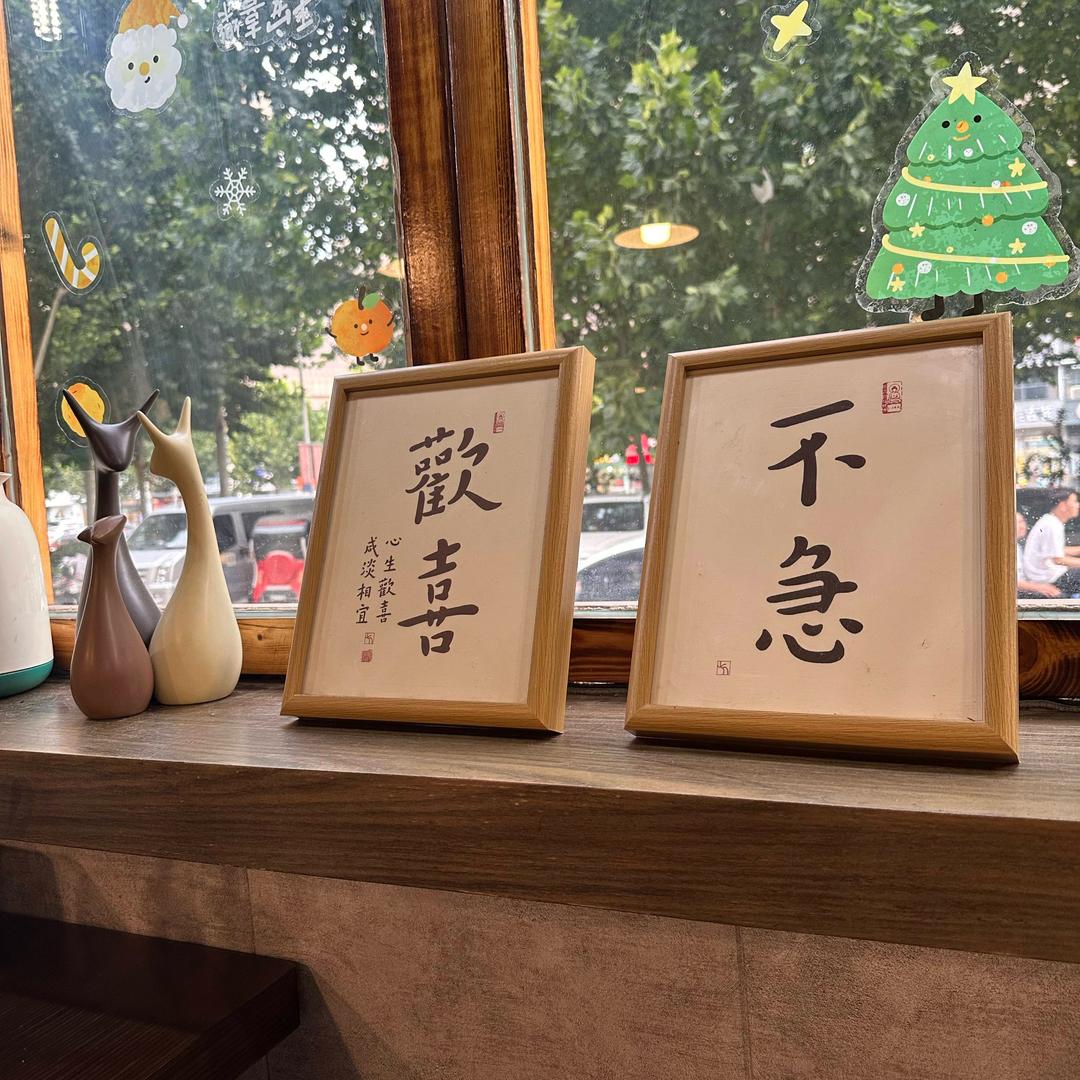 歡喜
心生歡喜
咸淡相宜
不急